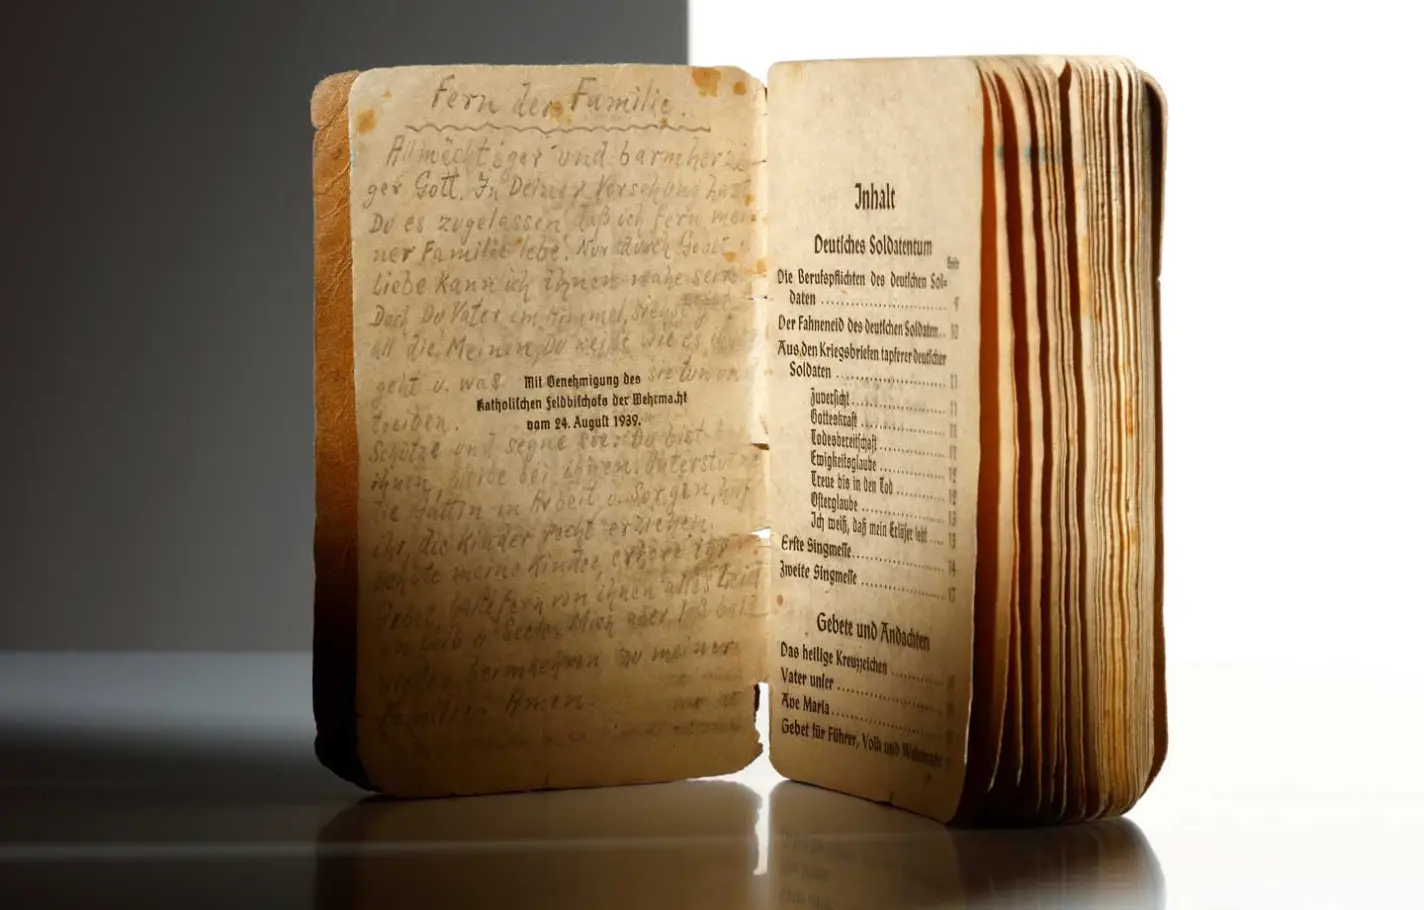 Fern der Familie.
Allmächtiger und barmherzi-
ger Gott. In Deiner Vorsehung hast
Du es zugelassen daß ich fern mei-
ner Familie lebe. Nur durch Gebet
Liebe kann ich ihnen nahe sein
Doch Du Vater im Himmel, siehst
all die Meinen, Du weißt wie es ihnen
geht u. was sie tun und
treiben.
Mit Genehmigung des
Katholischen Feldbischofs der Wehrmacht
vom 24. August 1939.
Schütze und segne sie. Du bist
ihnen, bleibe bei ihnen. Unterstütze
die Gattin in Arbeit u. Sorgen, hilf
ihr die Kinder recht erziehen.
behüte meine Kinder, erhöre ihr
Gebet, halte fern von ihnen alles Leid
an Leib u. Seele. Mich aber, laß bald
wieder heimkehren zu meiner
Familie. Amen.
Inhalt
Deutsches Soldatentum
Seite
Die Berufspflichten des deutschen Sol-
daten ................ 9
Der Fahneneid des deutschen Soldaten... 10
Aus den Kriegsbriefen tapferer deutscher
Soldaten ................ 11
Zuversicht ................ 11
Gotteskraft ................ 11
Todesbereitschaft ................ 11
Ewigkeitsglaube ................ 12
Treue bis in den Tod ........ 12
Osterglaube ................ 13
Ich weiß, daß mein Erlöser lebt .... 13
Erste Singmesse ................ 14
Zweite Singmesse ................ 17
Gebete und Andachten
Das heilige Kreuzzeichen ........
Vater unser ................
Ave Maria ................
Gebet für Führer, Volk und Wehrmacht